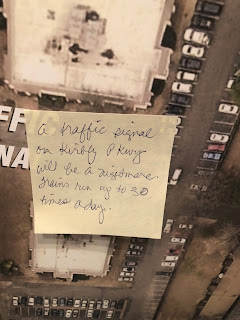 FF
NA
A traffic signal
on Kirby Pkwy
will be a nightmare.
Trains run up to 30
times a day.